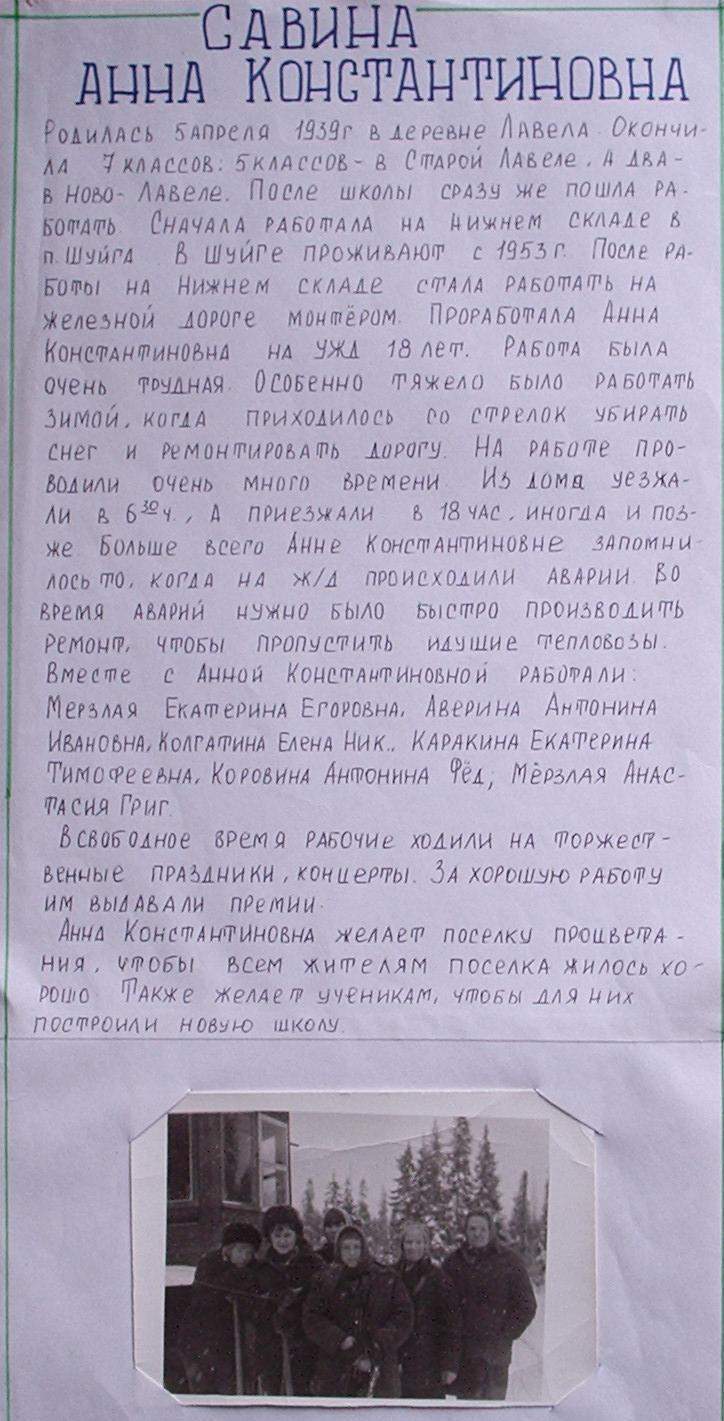 САВИНА
АННА КОНСТАНТИНОВНА
Родилась 5 апреля 1939г в деревне Лавела. Окончи-
ла 7 классов: 5 классов - в Старой Лавеле, а два -
в Ново-Лавеле. После школы сразу же пошла ра-
ботать. Сначала работала на нижнем складе в
п. Шуйга. В Шуйге проживают с 1953 г. После ра-
боты на нижнем складе стала работать на
железной дороге монтёром. Проработала Анна
Константиновна на УЖД 18 лет. Работа была
очень трудная. Особенно тяжело было работать
зимой, когда приходилось со стрелок убирать
снег и ремонтировать дорогу. На работе про-
водили очень много времени. Из дома уезжа-
ли в 6 30 ч., а приезжали в 18 час, иногда и поз-
же Больше всего Анне Константиновне запомни-
лось то, когда на ж/д происходили аварии. Во
время аварий нужно было быстро производить
ремонт, чтобы пропустить идущие тепловозы.
Вместе с Анной Константиновной работали:
Мерзлая Екатерина Егоровна, Аверина Антонина
Ивановна, Колгатина Елена Ник., Каракина Екатерина
Тимофеевна, Коровина Антонина Фёд; Мёрзлая Анас-
тасия Григ.
В свободное время рабочие ходили на торжест-
венные праздники, концерты. За хорошую работу
им выдавали премии.
Анна Константиновна желает поселку процвета-
ния, чтобы всем жителям поселка жилось хо-
рошо. Также желает ученикам, чтобы для них
построили новую школу.